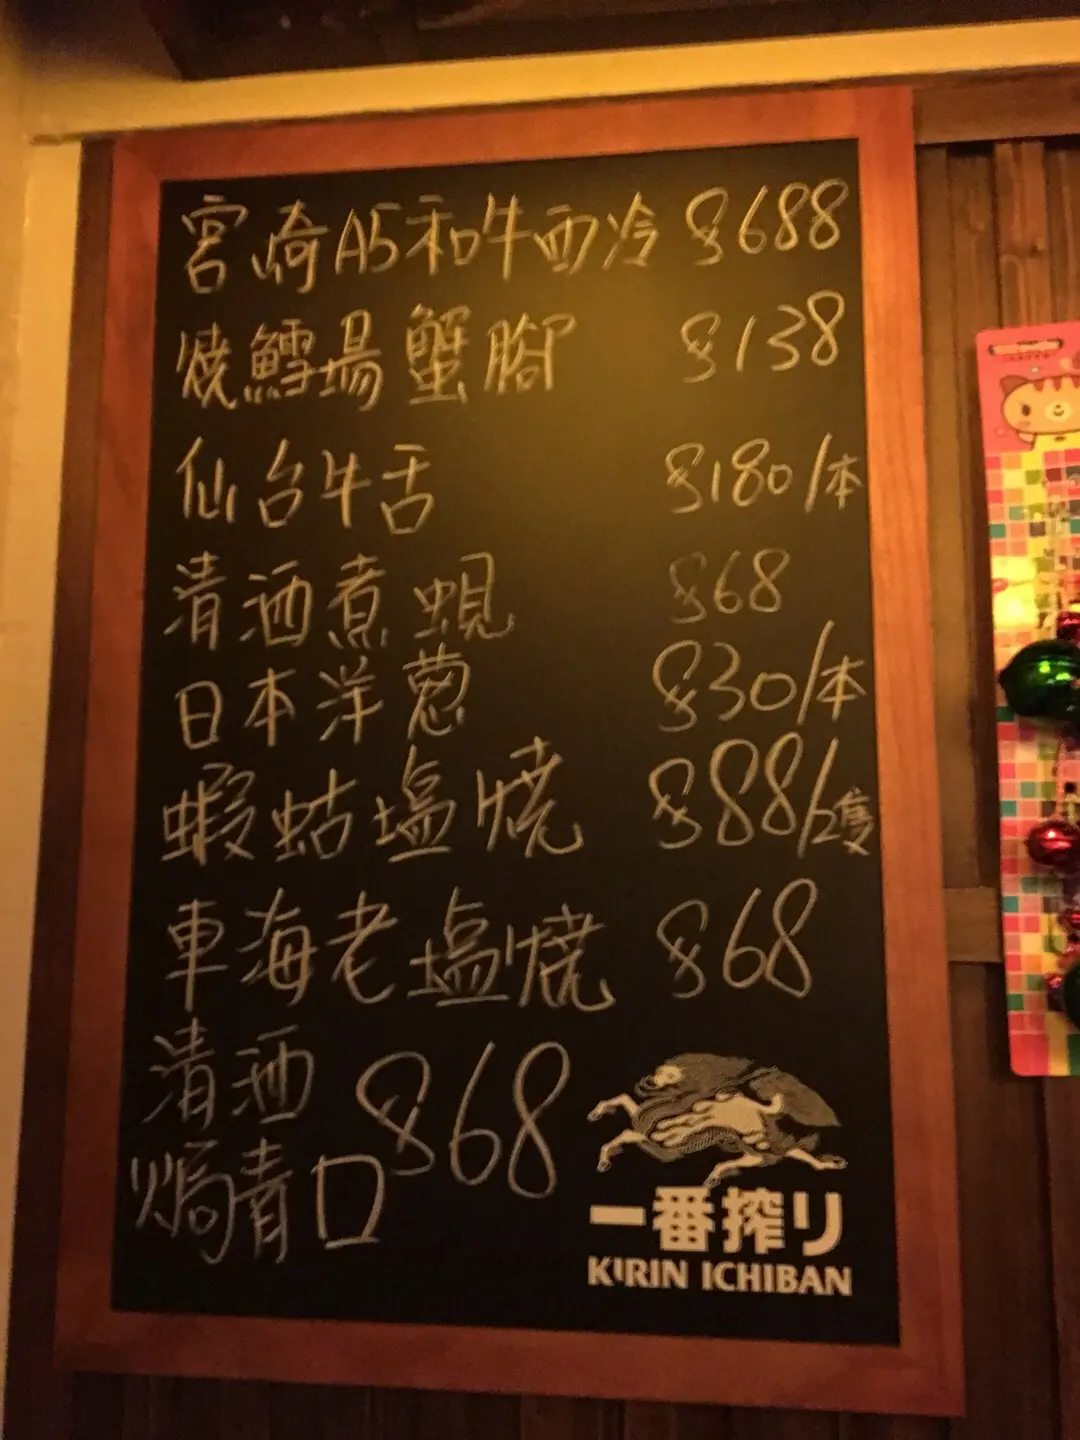 宮崎A5和牛西冷 $688
燒鱈場蟹腳 $138
仙台牛舌 $180/本
清酒煮蜆 $68
日本洋蔥 $30/本
蝦蛄塩燒 $88/2隻
車海老塩燒 $68
清酒
焗青口 $68
一番搾り
KIRIN ICHIBAN